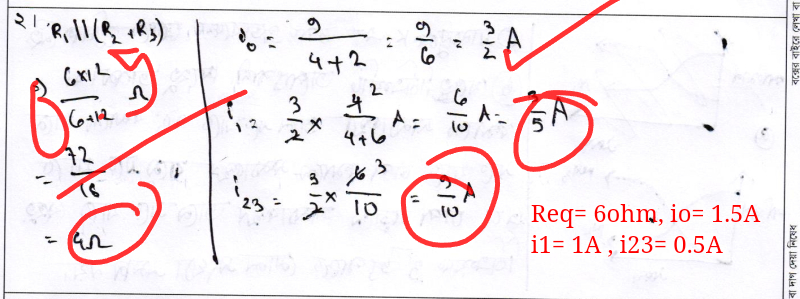 21
R1 || (R2 + R3)
6×12 / 6+12 Ω
= 72 / 18
= 4Ω
i0 = 9 / 4+2 = 9/6 = 3/2 A
i12 = 3/2 × 4 2 / 4+6 A = 6/10 A = 3/5 A
i23 = 3/2 × 6 3 / 10 = 9/10 A
Req= 6ohm, io= 1.5A
i1= 1A , i23= 0.5A